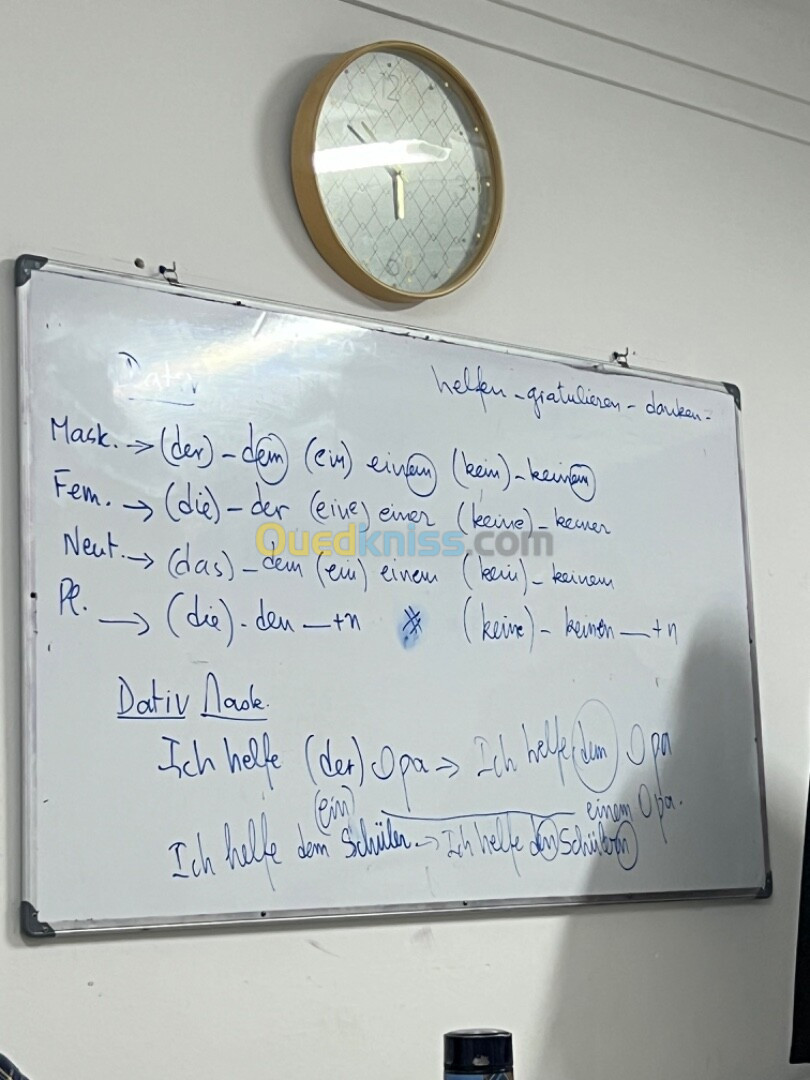 12
6
Dativ
helfen - gratulieren - danken -
Mask. → (der) - dem (ein) einem (kein) - keinem
Fem. → (die) - der (eine) einer (keine) - keiner
Ouedkniss.com
Neut. → (das) - dem (ein) einem (kein) - keinem
Pl. → (die) - den —+n # (keine) - keinen —+n
Dativ Mask.
Ich helfe (der) Opa → Ich helfe dem Opa
(ein) einem Opa.
Ich helfe dem Schüler → Ich helfe den Schülern